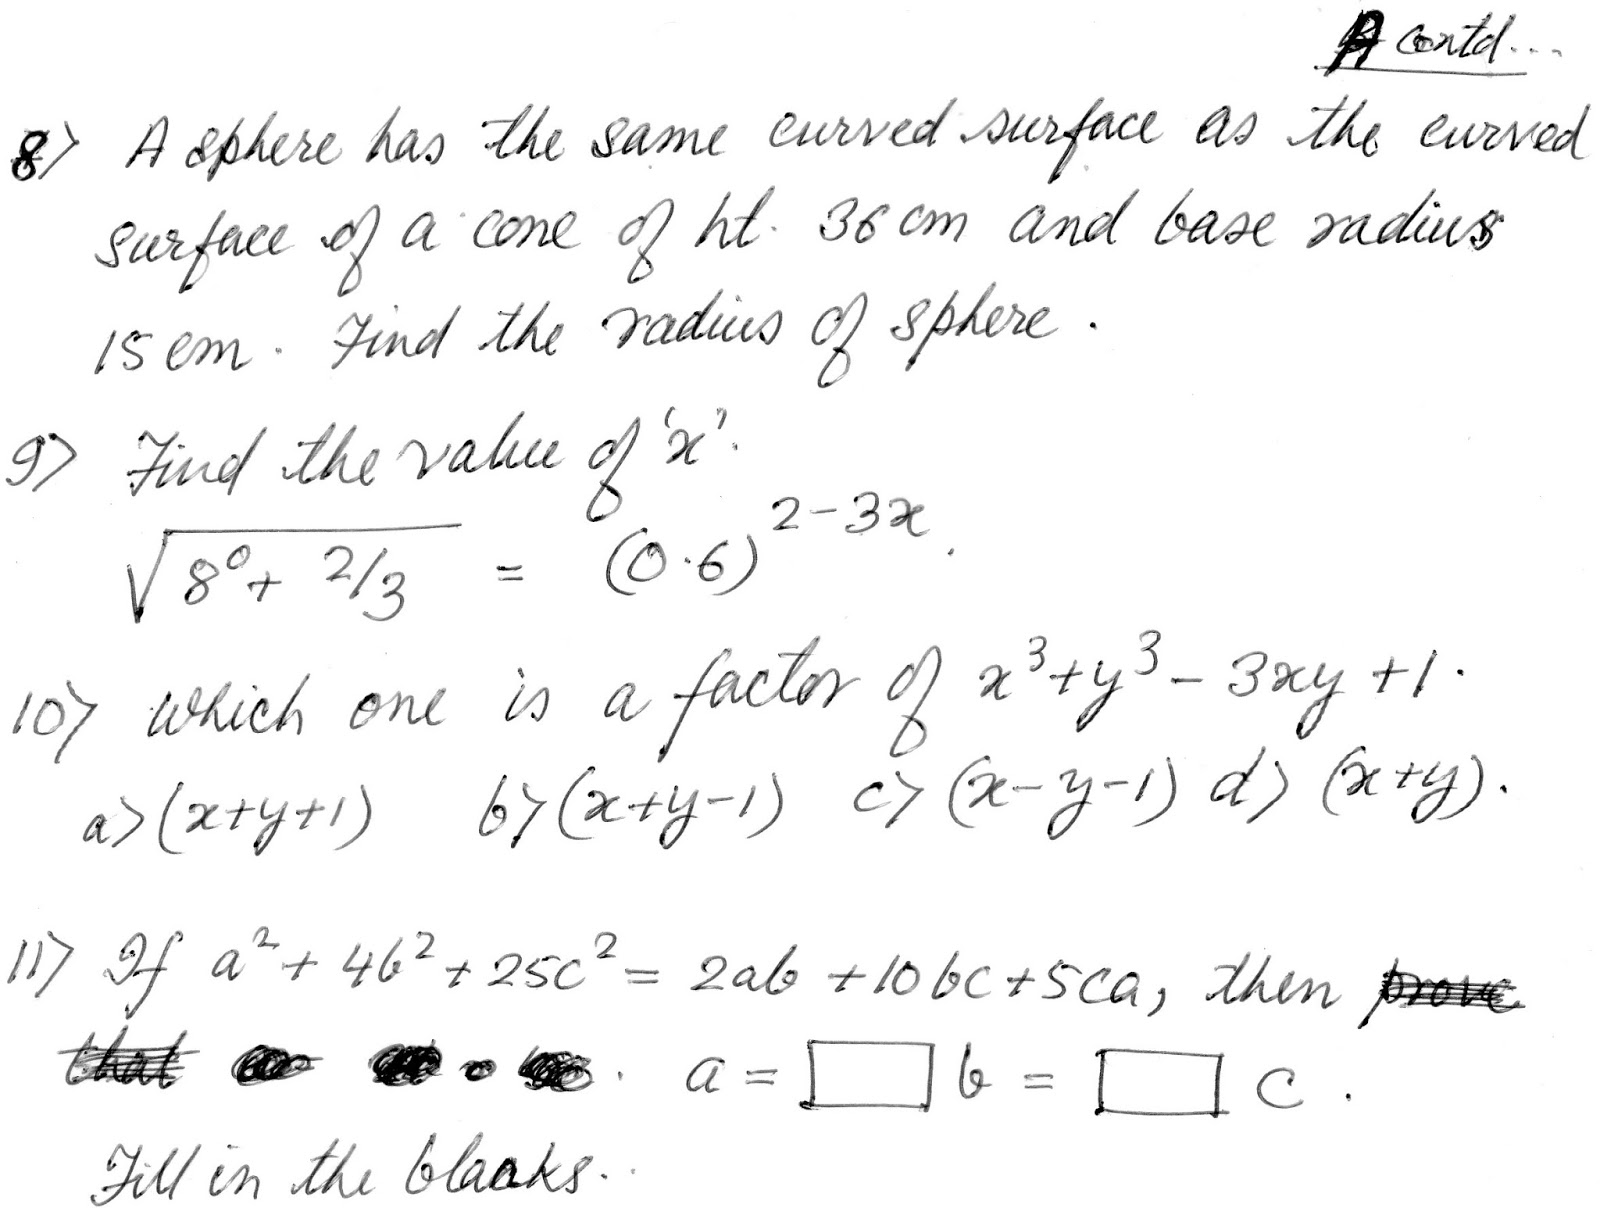 A contd...
8> A sphere has the same curved surface as the curved
surface of a cone of ht. 36 cm and base radius
15 cm. Find the radius of sphere.
9> Find the value of 'x'.
√(8⁰ + 2/3) = (0.6)²⁻³ˣ.
10> Which one is a factor of x³+y³-3xy+1.
a> (x+y+1) b> (x+y-1) c> (x-y-1) d> (x+y).
11> If a²+4b²+25c² = 2ab+10bc+5ca, then prove
that a = □ b = □ c.
Fill in the blanks.